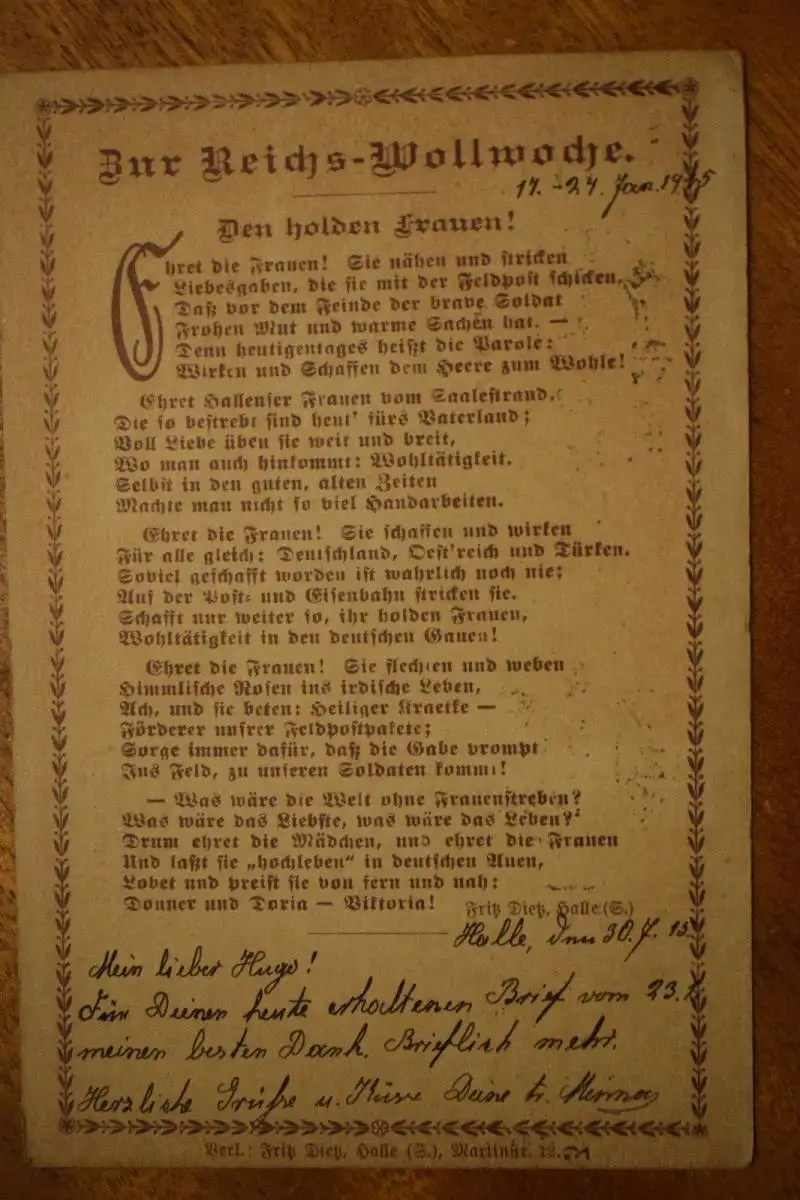 Zur Reichs-Wollwoche.
17.-24. Jan. 1915
Den holden Frauen!
Ehret die Frauen! Sie nähen und stricken
Liebesgaben, die sie mit der Feldpost schicken,
Daß vor dem Feinde der brave Soldat
Frohen Mut und warme Sachen hat. —
Denn heutigentages heißt die Parole:
Wirken und Schaffen dem Heere zum Wohle!
Ehret Hallenser Frauen vom Saalestrand,
Die so bestrebt sind heut' fürs Vaterland;
Voll Liebe üben sie weit und breit,
Wo man auch hinkommt: Wohltätigkeit.
Selbst in den guten, alten Zeiten
Machte man nicht so viel Handarbeiten.
Ehret die Frauen! Sie schaffen und wirken
Für alle gleich: Deutschland, Oest'reich und Türken.
Soviel geschafft worden ist wahrlich noch nie;
Auf der Post- und Eisenbahn stricken sie.
Schafft nur weiter so, ihr holden Frauen,
Wohltätigkeit in den deutschen Gauen!
Ehret die Frauen! Sie flechten und weben
Himmlische Rosen ins irdische Leben,
Ach, und sie beten: Heiliger Kraetke —
Förderer unsrer Feldpostpakete;
Sorge immer dafür, daß die Gabe prompt
Ins Feld, zu unseren Soldaten kommt!
— Was wäre die Welt ohne Frauenstreben?
Was wäre das Liebste, was wäre das Leben?
Drum ehret die Mädchen, und ehret die Frauen
Und laßt sie „hochleben“ in deutschen Auen,
Lobet und preist sie von fern und nah:
Donner und Doria — Viktoria!
Fritz Dietz, Halle (S.)
Halle, den 30. 15.
Mein lieber Hugo!
Für Deinen heute erhaltenen Brief vom 23.
meinen besten Dank. Brieflich mehr.
Herzliche Grüße u. Küsse Deine tr.
Verl.: Fritz Dietz, Halle (S.), Martinstr. 12.